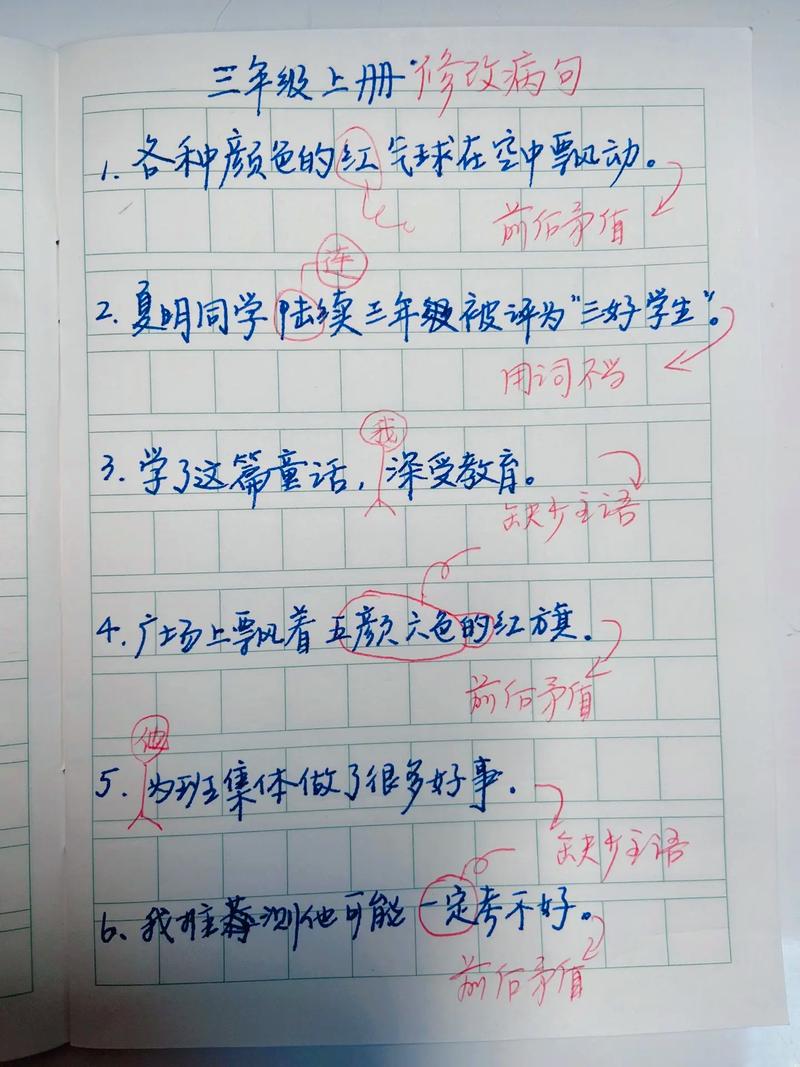 三年级上册·修改病句
1. 各种颜色的红气球在空中飘动。
前后矛值
连
2. 夏明同学陆续三年级被评为“三好学生”。
用词不当
我
3. 学了这篇童话，深受教育。
缺少主语
4. 广场上飘着五颜六色的红旗.
前后矛值
他
5. 为班集体做了很多好事.
缺少主语
6. 我推测他可能一定考不好。
前后矛值